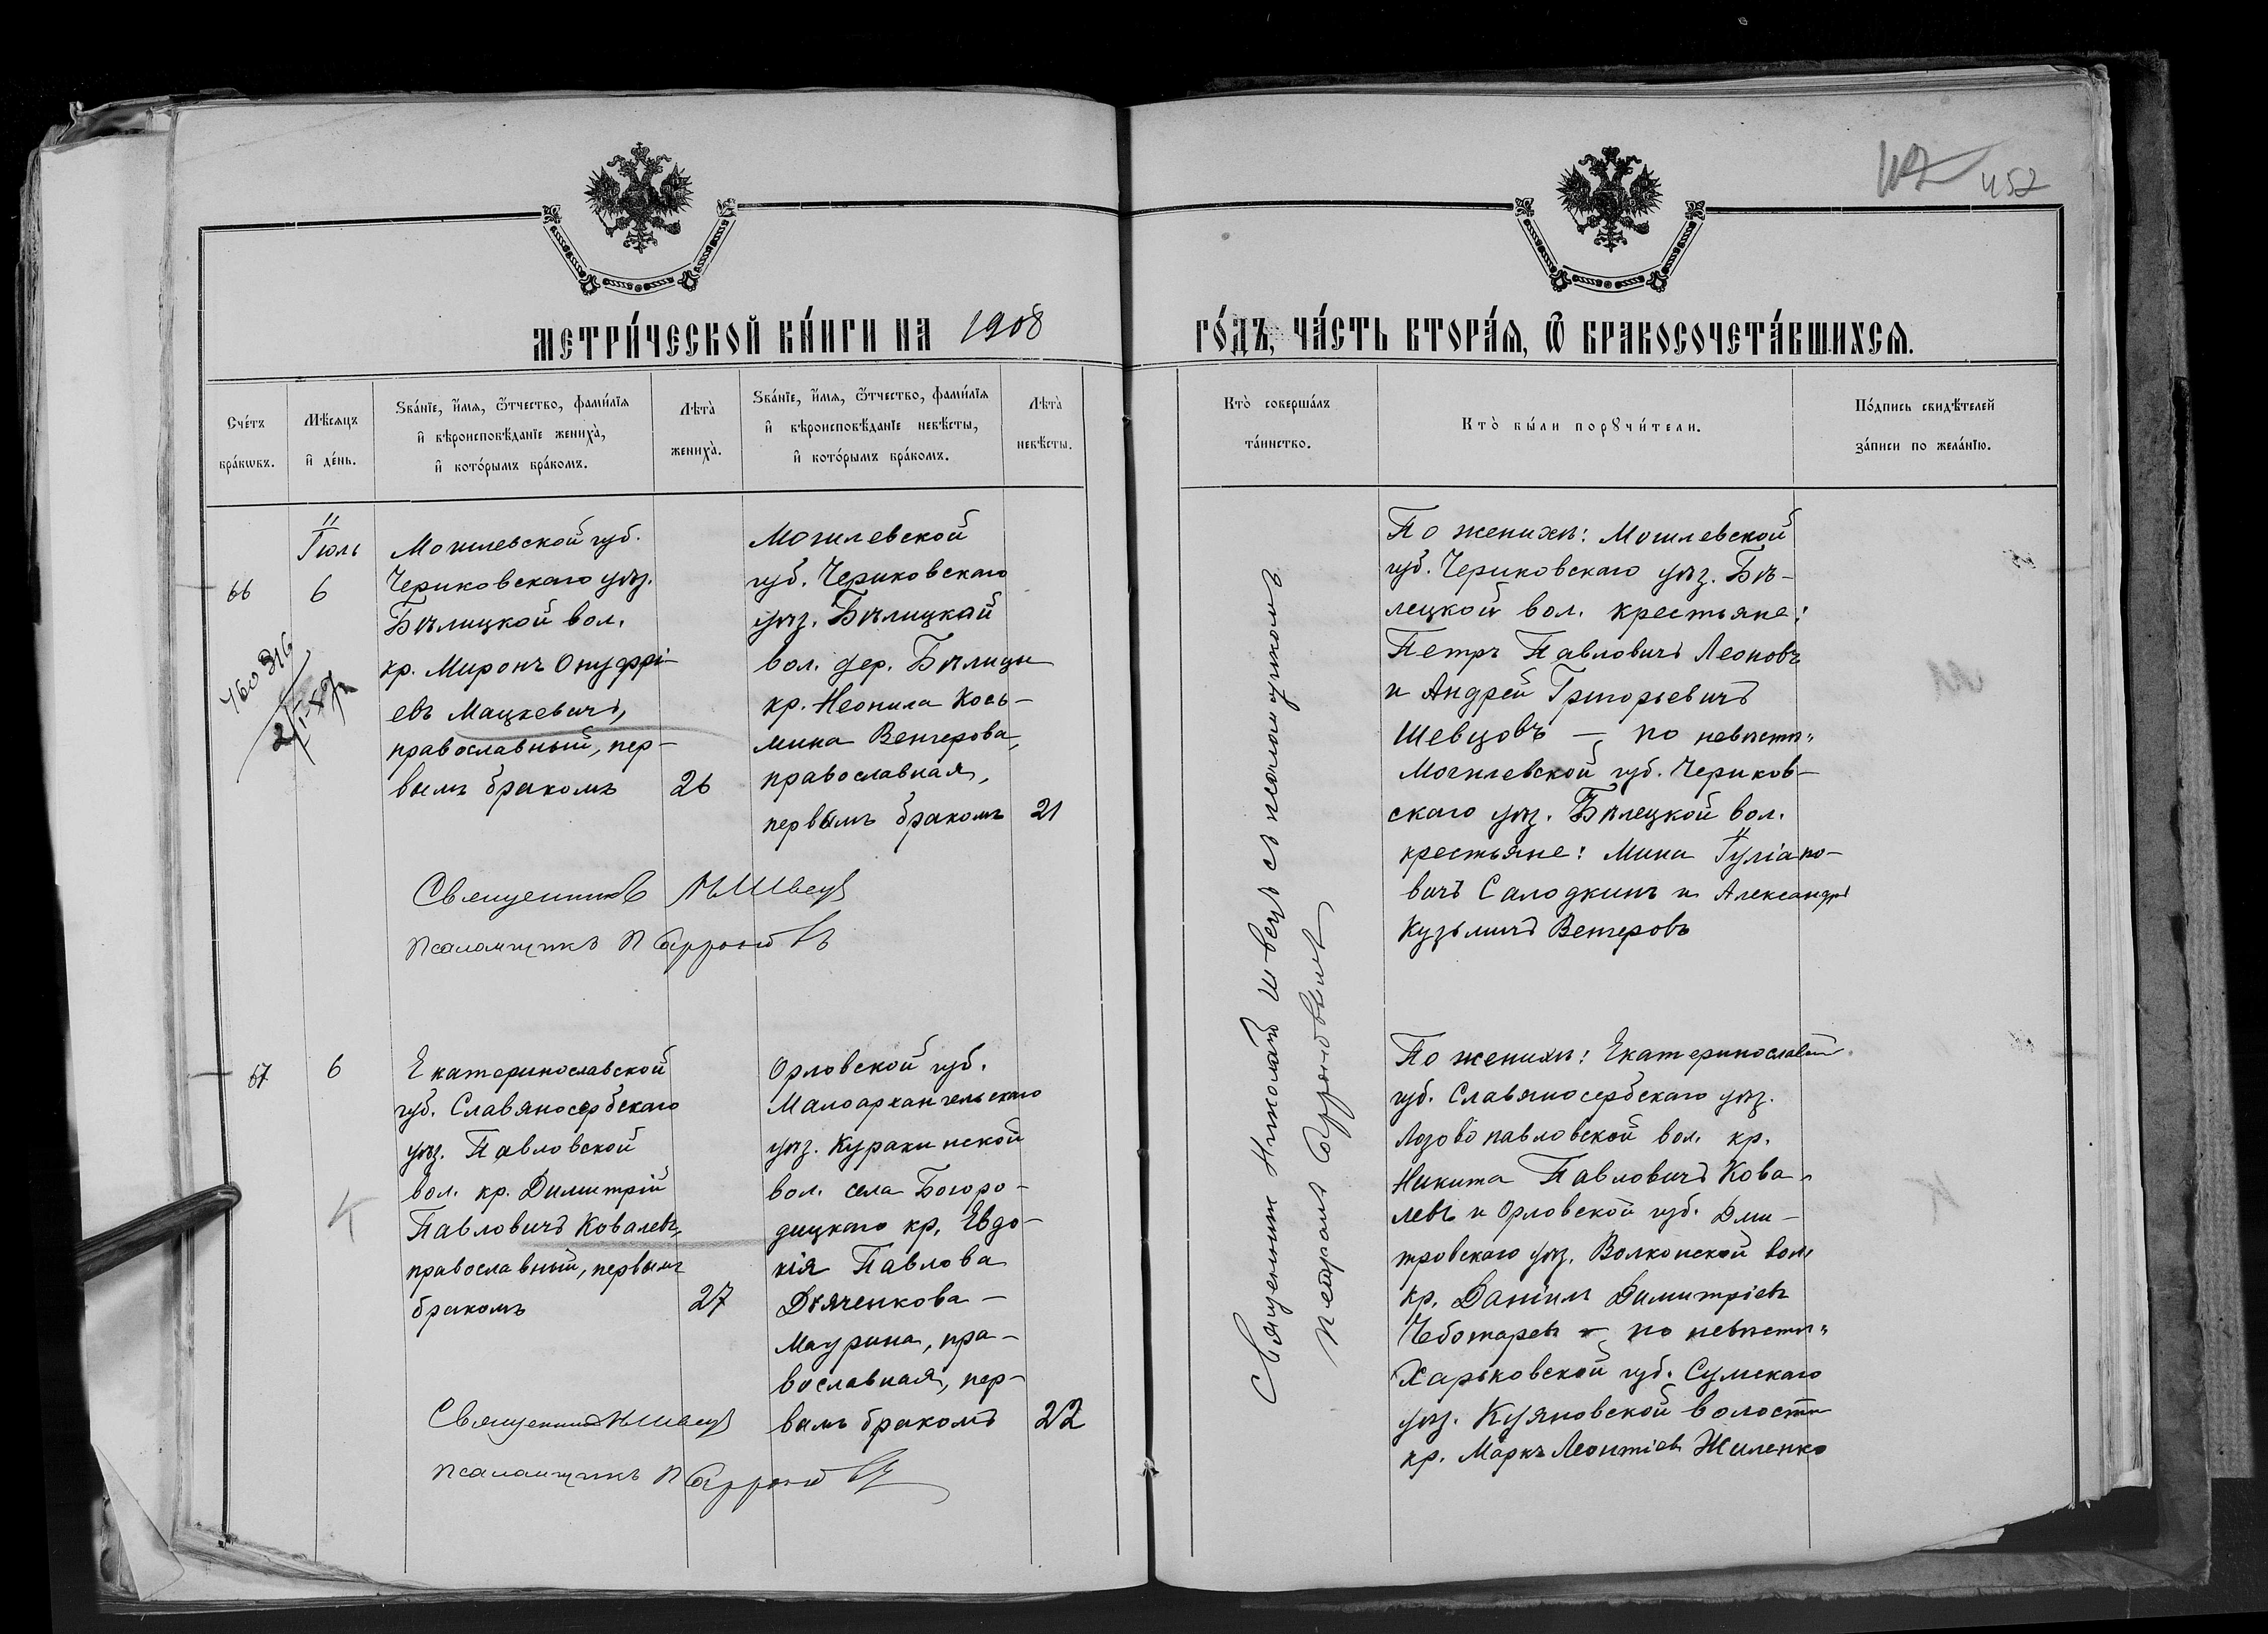 452
МЕТРИ́ЧЕСКОЙ КНИ́ГИ НА 1908
ГО́ДЪ, ЧА́СТЬ ВТОРА́Я, Ѿ БРАКОСОЧЕТА́ВШИХСЯ.
Сче́тъ бра́кѡвъ.
Мѣ́сяцъ и҆ де́нь.
Зва́нїе, и҆́мя, ѻ҆́тчество, фами́лїя
и҆ вѣроисповѣ́данїе жениха̀,
и҆ кото́рымъ бра́комъ.
Лѣта̀ жениха̀.
Зва́нїе, и҆́мя, ѻ҆́тчество, фами́лїя
и҆ вѣроисповѣ́данїе невѣ́сты,
и҆ кото́рымъ бра́комъ.
Лѣта̀ невѣ́сты.
Кто̀ соверша́лъ
та́инство.
Кто̀ бы́ли порꙋчи́тели.
По́дпись свидѣ́телей
за́писи по жела́нїю.
66
Іюль
6
Могилевской губ.
Чериковскаго уѣз.
Бѣлицкой вол.
кр. Миронъ Онуфрі-
евъ Мацкевичъ,
православный, пер-
вымъ бракомъ
26
Могилевской
губ. Чериковскаго
уѣз. Бѣлицкай
вол. дер. Бѣлицы
кр. Неонила Кось-
мина Венгерова,
православная,
первымъ бракомъ
21
Священникъ Н Швецъ
псаломщикъ П
Священник Николай Швецъ съ псаломщикомъ
Петромъ
По женихѣ: Могилевской
губ. Чериковскаго уѣз. Бѣ-
лецкой вол. крестьяне:
Петръ Павловичъ Леоновъ
и Андрей Григорьевичъ
Шевцовъ — по невѣстѣ:
Могилевской губ. Чериков-
скаго уѣз. Бѣлецкой вол.
крестьяне: Мина Іуліано-
вичъ Салодкинъ и Александръ
Кузьмичъ Венгеровъ
67
6
Екатеринославской
губ. Славяносербскаго
уѣз. Павловской
вол. кр. Димитрій
Павловичъ Ковалевъ,
православный, первымъ
бракомъ
27
Орловской губ.
Малоархангельскаго
уѣз. Куракинской
вол. села Богоро-
дицкаго кр. Евдо-
кія Павлова
Дьяченкова —
Маурина, пра-
вославная, пер-
вымъ бракомъ
22
Священникъ Н Швецъ
псаломщикъ П
По женихѣ: Екатеринославской
губ. Славяносербскаго уѣз.
Лозовопавловской вол. кр.
Никита Павловичъ Кова-
левъ и Орловской губ. Дми-
тровскаго уѣз. Волконской вол.
кр. Даніилъ Димитріевъ
Чеботаревъ — по невѣстѣ:
Харьковской губ. Сумскаго
уѣз. Куяновской волости
кр. Маркъ Леонтіевъ Жиленко